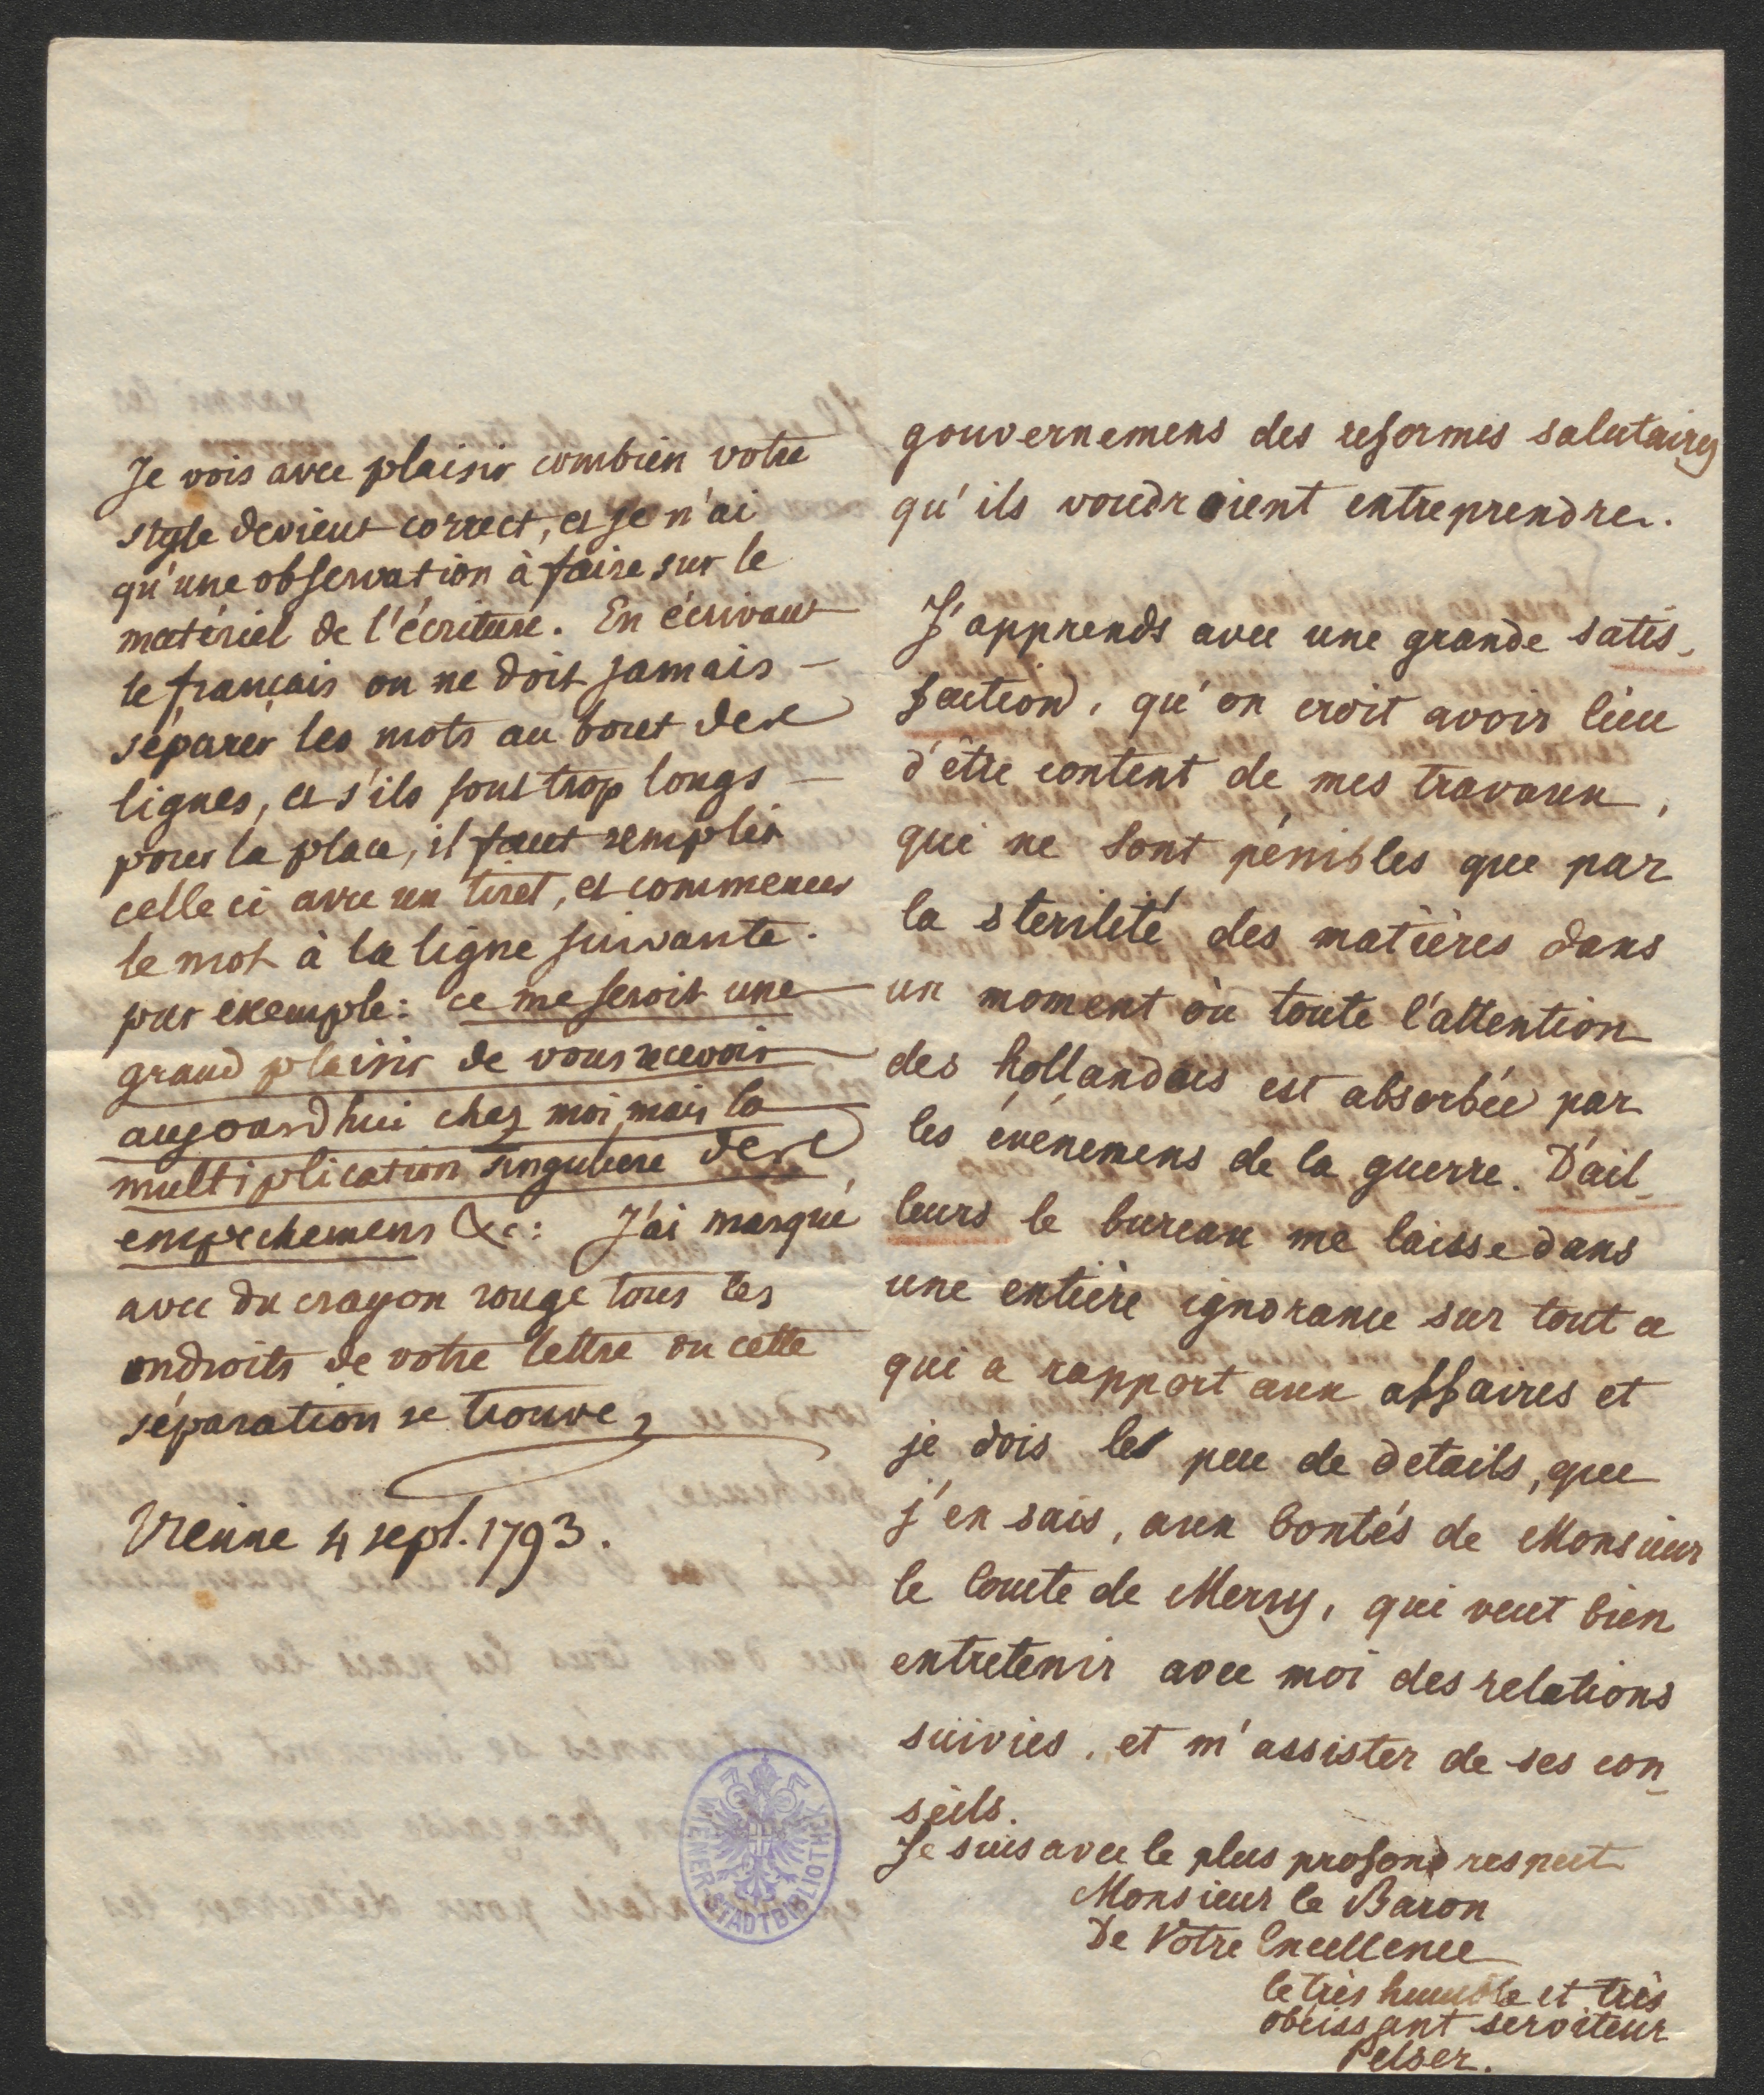 Je vois avec plaisir combien votre
style devient correct, et je n'ai
qu'une observation à faire sur le
matériel de l'écriture. En écrivant
le français on ne doit jamais —
séparer les mots au bout des
lignes, et s'ils sont trop longs —
pour la place, il faut remplir
celle ci avec un tiret, et commencer
le mot à la ligne suivante.
par exemple: ce me seroit une —
grand plaisir de vous recevoir —
aujourdhui chez moi, mais la —
multiplication singuliere des
empechemens &c: J'ai marqué
avec du crayon rouge tous les
endroits de votre lettre ou cette
séparation se trouve
Vienne 4 sept. 1793.
WIENER STADTBIBLIOTHEK
gouvernemens des reformes salutaires
qu'ils voudroient entreprendre.
J'apprends avec une grande satis-
faction, qu'on croit avoir lieu
d'être content de mes travaux,
qui ne sont pénibles que par
la sterilité des matières dans
un moment où toute l'attention
des hollandais est absorbée par
les événemens de la guerre. D'ail-
leurs le bureau me laisse dans
une entière ignorance sur tout ce
qui a rapport aux affaires et
je dois le peu de details, que
j'en sais, aux bontés de Monsieur
le Comte de Mercy, qui veut bien
entretenir avec moi des relations
suivies, et m'assister de ses con-
seils.
Je suis avec le plus profond respect
Monsieur le Baron
De Votre Excellence
le très humble et très
obéissant serviteur
Pelser.